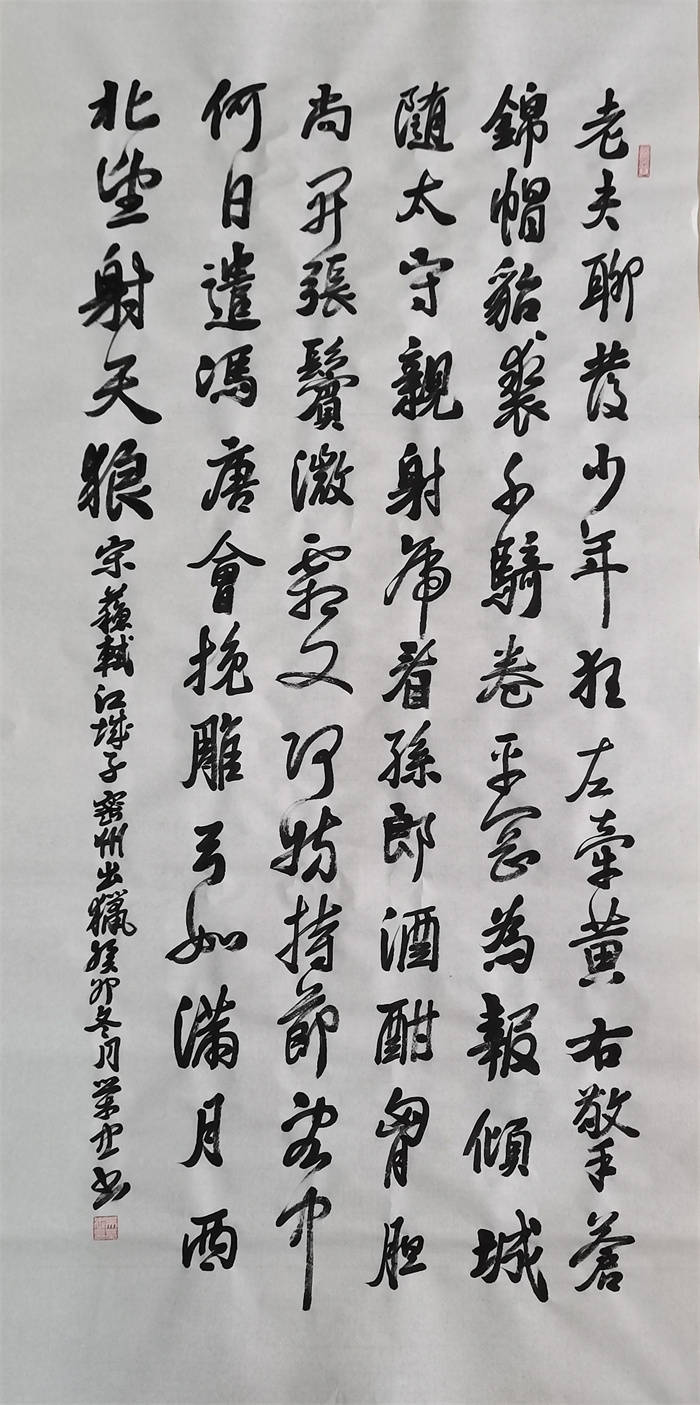 老夫聊發少年狂左牽黃右擎蒼
錦帽貂裘千騎卷平岡為報傾城
隨太守親射虎看孫郎酒酣胷胆
尚開張鬢微霜又何妨持節雲中
何日遣馮唐會挽雕弓如滿月西
北望射天狼宋蘇軾江城子密州出獵癸卯冬月書